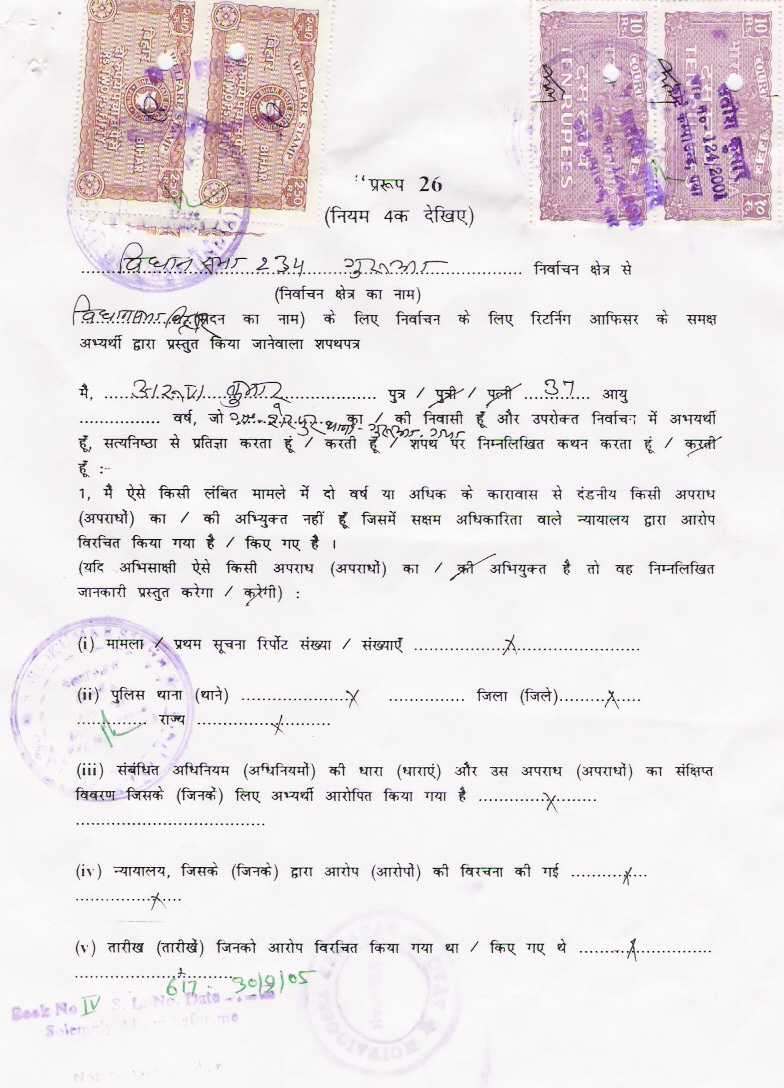 WELFARE STAMP
BIHAR
2.50
WELFARE STAMP
BIHAR
2.50
10 Rs.
COURT FEE
TEN RUPEES
10 Rs.
COURT FEE
INDIA
१० रु.
124/2001
"प्ररूप 26
(नियम 4क देखिए)
विधान सभा 234 गुरूआ निर्वाचन क्षेत्र से
(निर्वाचन क्षेत्र का नाम)
विधानसभा (सदन का नाम) के लिए निर्वाचन के लिए रिटर्निग आफिसर के समक्ष
अभ्यर्थी द्वारा प्रस्तुत किया जानेवाला शपथपत्र
मै, कुमार पुत्र / पुत्री / पत्नी 37 आयु
वर्ष, जो का / की निवासी हूँ और उपरोक्त निर्वाचन में अभयर्थी
हूँ, सत्यनिष्ठा से प्रतिज्ञा करता हूं / करती हूँ / शपथ पर निम्नलिखित कथन करता हूं / करती
हूँ :-
1, मै ऐसे किसी लंबित मामले में दो वर्ष या अधिक के कारावास से दंडनीय किसी अपराध
(अपराधों) का / की अभ्यिुक्त नहीं हूँ जिसमें सक्षम अधिकारिता वाले न्यायालय द्वारा आरोप
विरचित किया गया है / किए गए है ।
(यदि अभिसाक्षी ऐसे किसी अपराध (अपराधों) का / की अभियुक्त है तो वह निम्नलिखित
जानकारी प्रस्तुत करेगा / करेगी) :
(i) मामला / प्रथम सूचना रिर्पोट संख्या / संख्याएँ ........X........
(ii) पुलिस थाना (थाने) ........X ........ जिला (जिले)........X....
........ राज्य ........X........
(iii) संबंधित अधिनियम (अधिनियमों) की धारा (धाराएं) और उस अपराध (अपराधों) का संक्षिप्त
विवरण जिसके (जिनके) लिए अभ्यर्थी आरोपित किया गया है ........X........
(iv) न्यायालय, जिसके (जिनके) द्वारा आरोप (आरोपों) की विरचना की गई ........X....
........X....
(v) तारीख (तारीखें) जिनको आरोप विरचित किया गया था / किए गए थे ........X........
Book No IV S. L. No. 617 Date 30/9/05
Solemnly before me